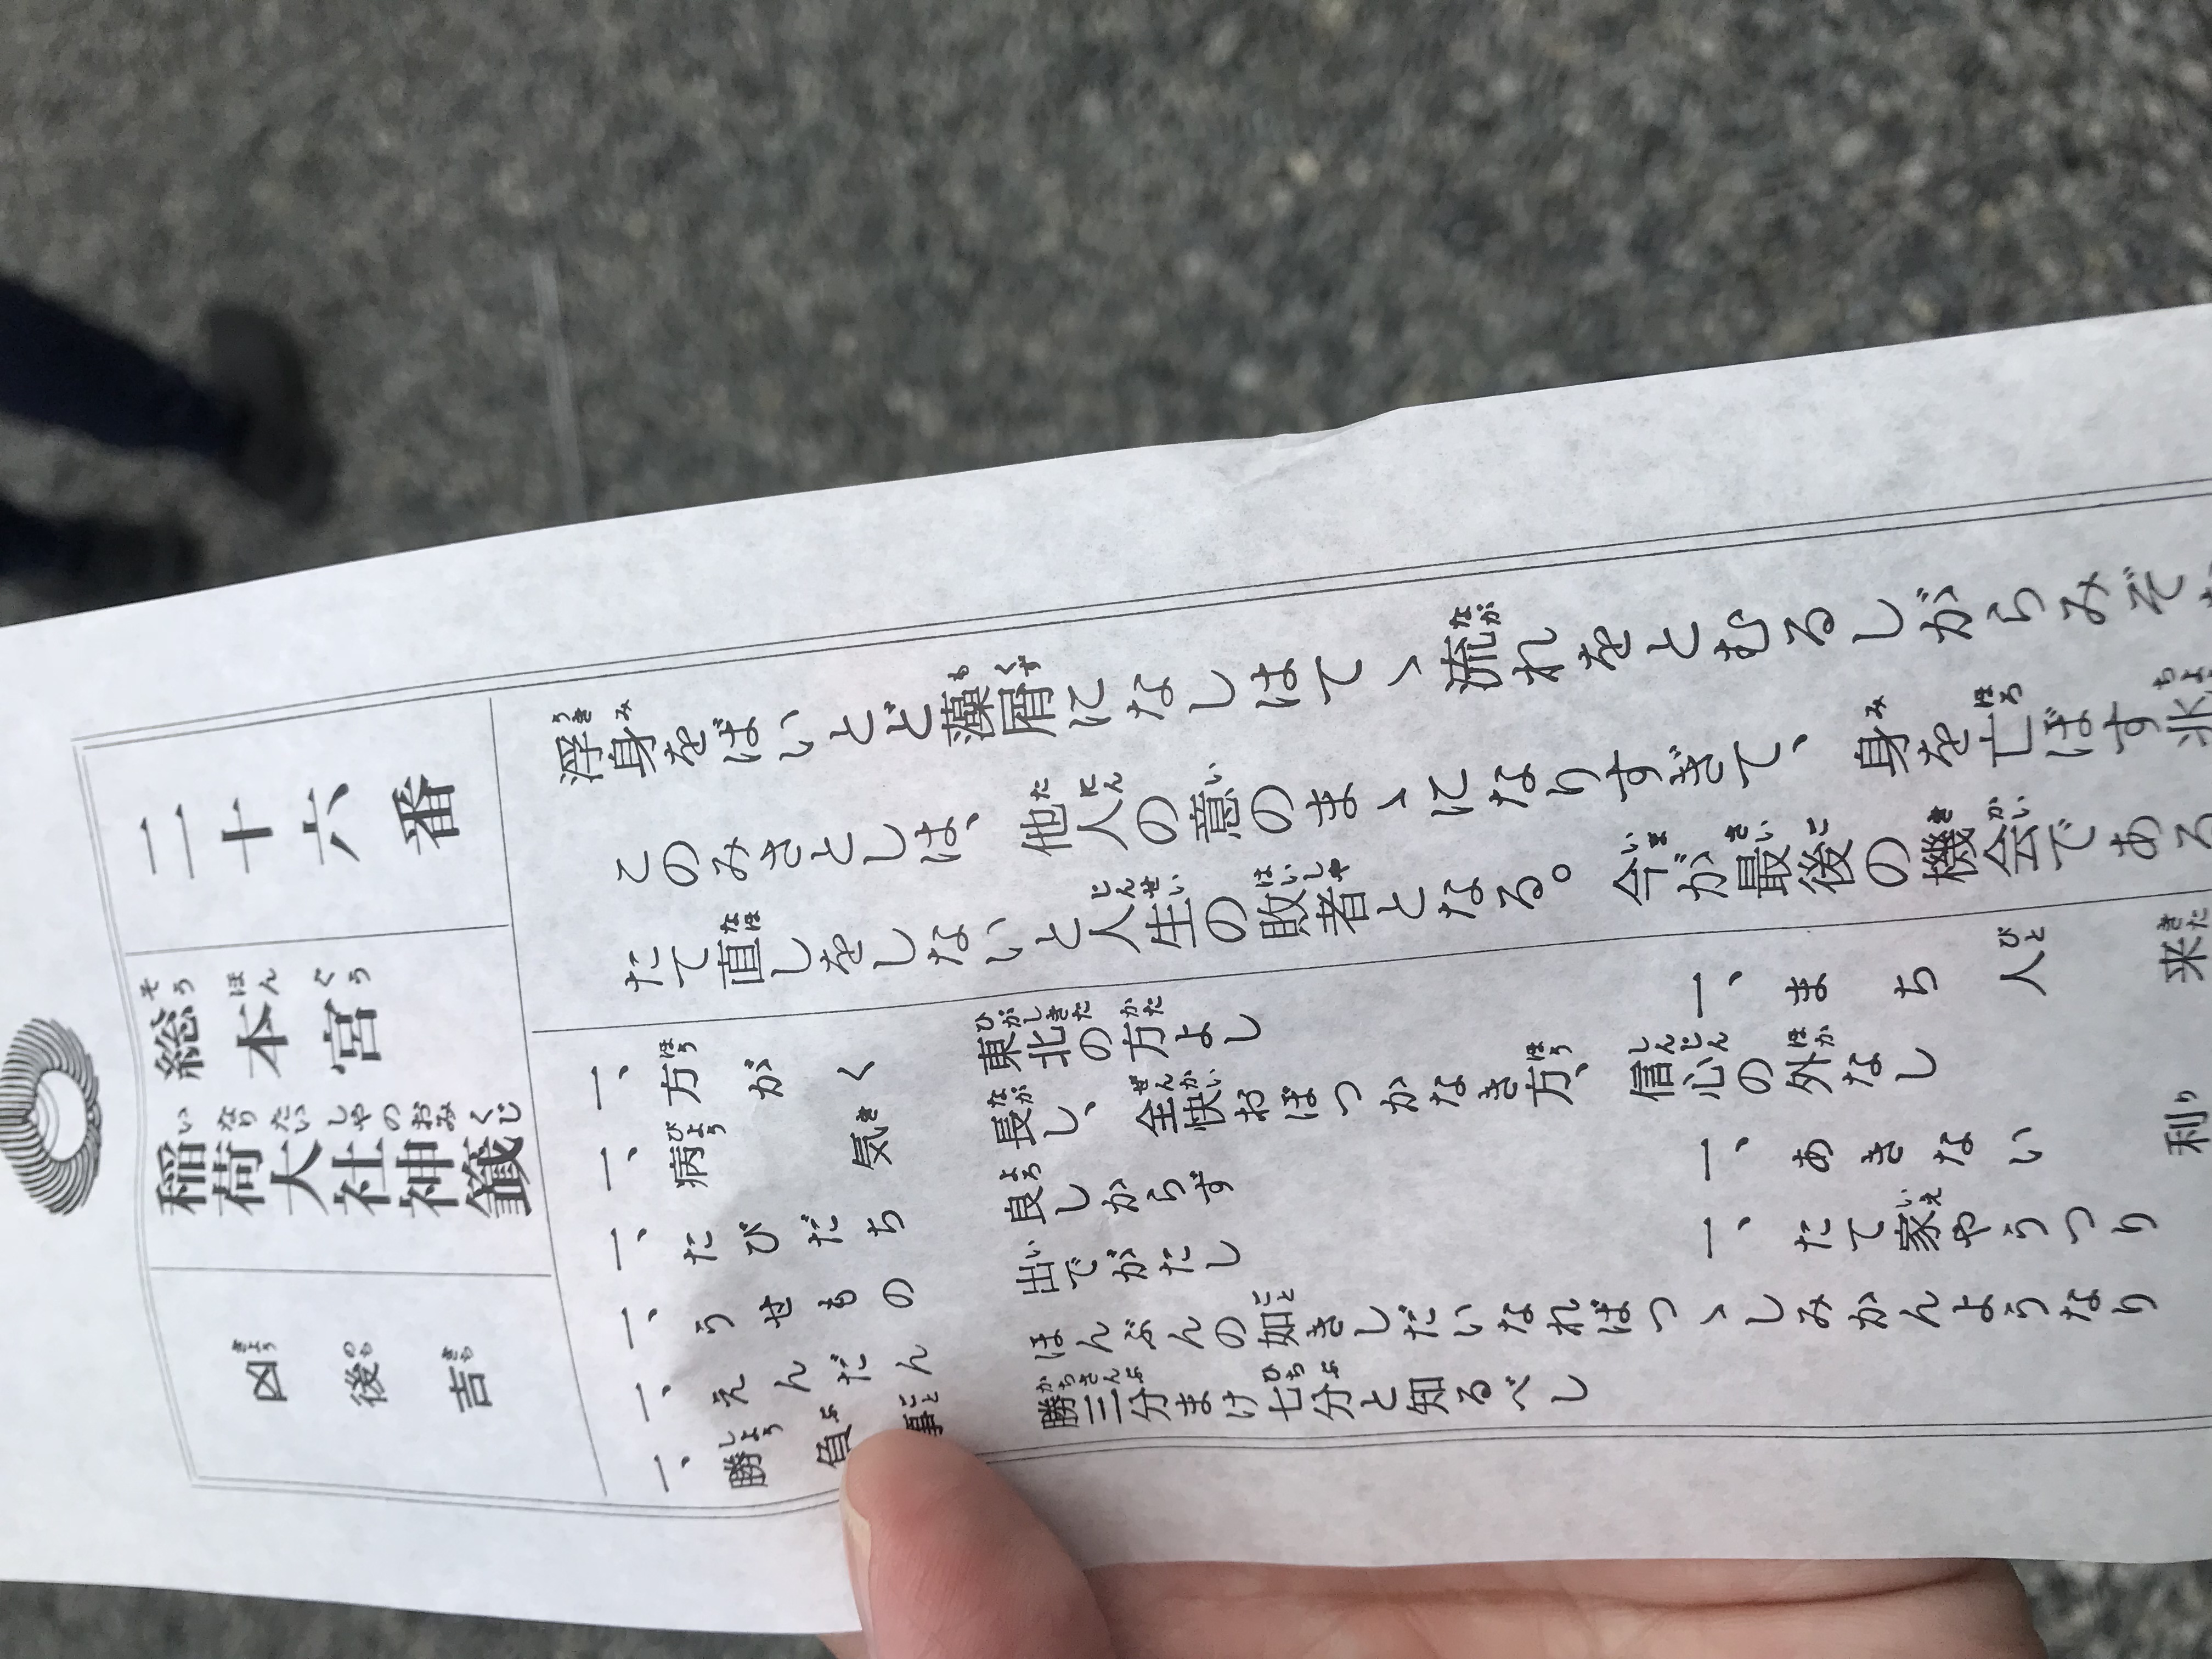 二十六番
総本宮
稲荷大社神籤
凶後吉
浮身をばいとど藻屑になしはてゝ流れをとむるしがらみぞ
このみさとしは、他人の意のまゝになりすぎて、身を亡ぼす氷
たて直しをしないと人生の敗者となる。今が最後の機会である
一、方がく 東北の方よし
一、病気 長し、全快おぼつかなき方、信心の外なし
一、たびだち 良しからず
一、うせもの 出でがだし
一、えんだん ほんぶんの如きしだいなればつゝしみかんようなり
一、勝負事 勝三分まけ七分と知るべし
一、まち人 来
一、あきない 利
一、たて家やうつり